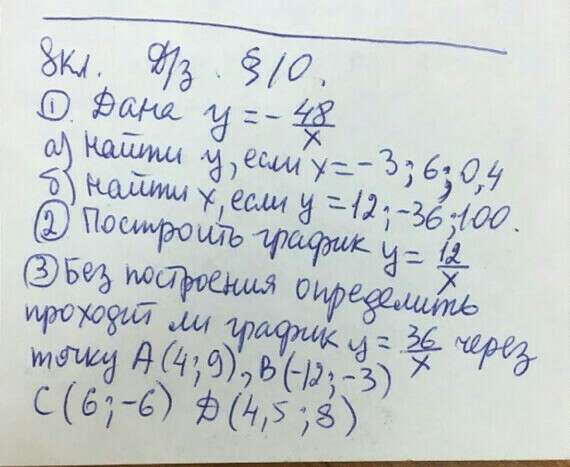 8кл. Д/з. § 10.
① Дана y = - 48/x
а) Найти y, если x = -3; 6; 0,4
б) Найти x, если y = 12; -36; 100.
② Построить график y = 12/x
③ Без построения определить
проходит ли график y = 36/x через
точку A(4; 9), B(-12; -3)
C(6; -6) Д(4,5; 8)